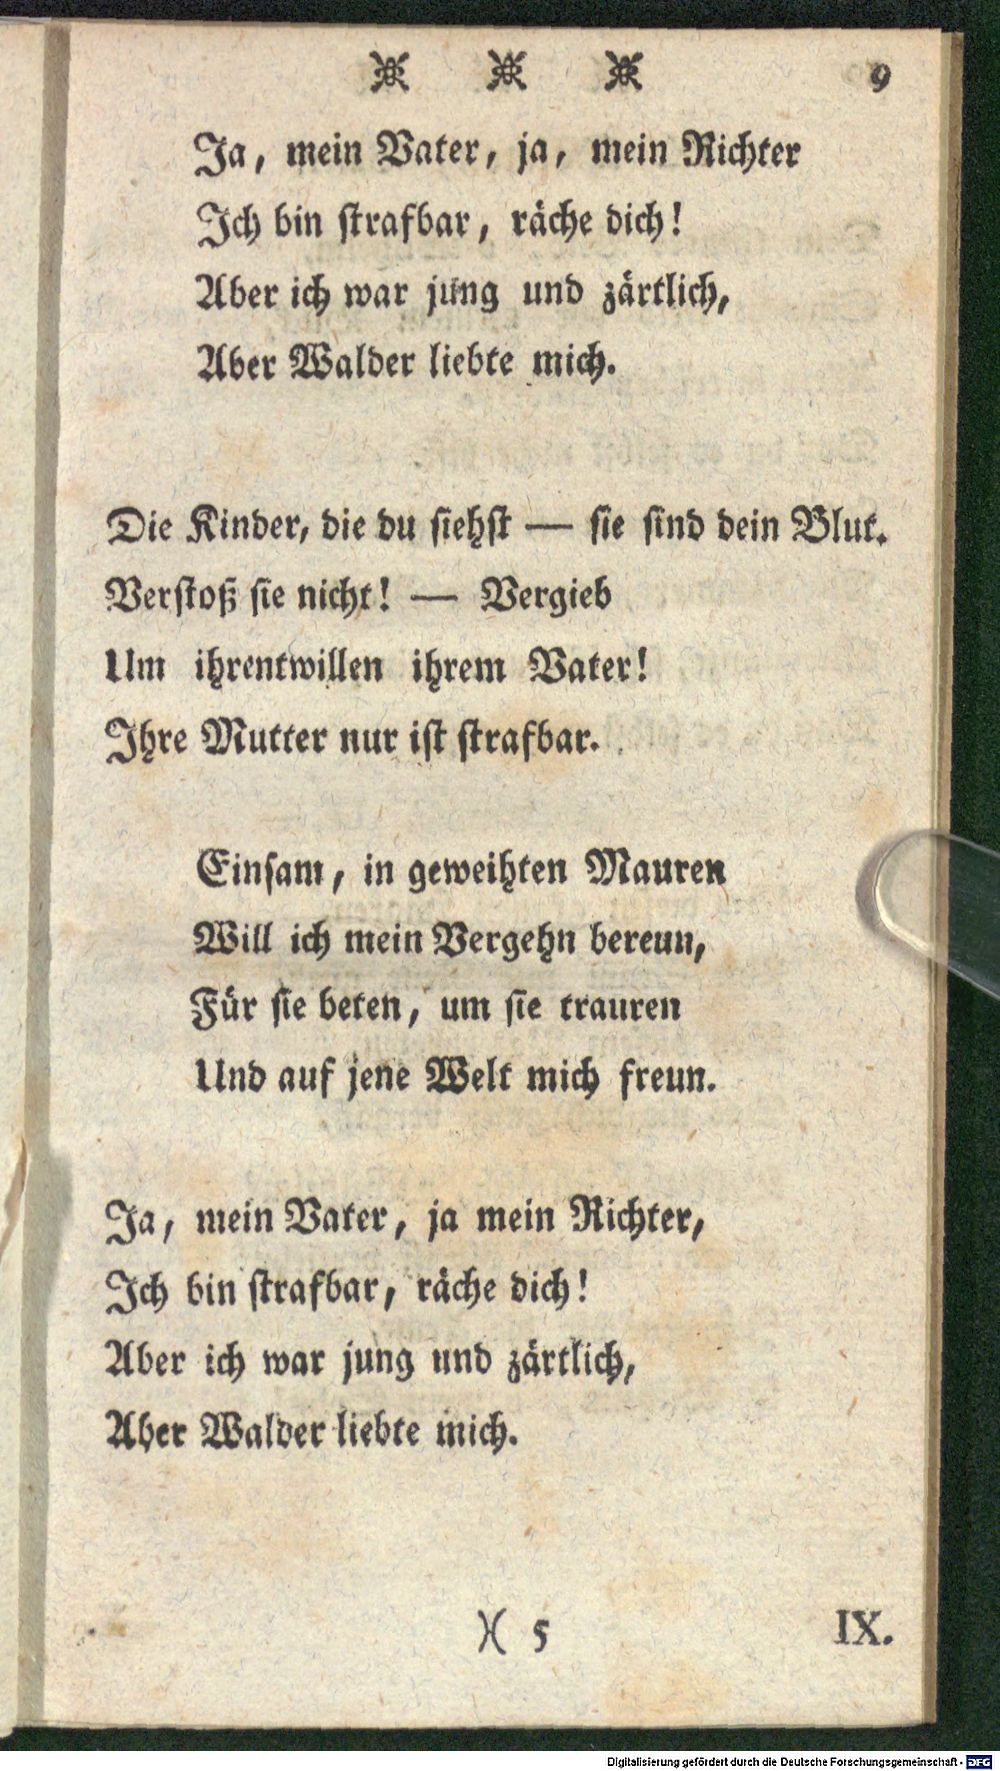 9
Ja, mein Vater, ja, mein Richter
Ich bin strafbar, räche dich!
Aber ich war jung und zärtlich,
Aber Walder liebte mich.
Die Kinder, die du siehst — sie sind dein Blut.
Verstoß sie nicht! — Vergieb
Um ihrentwillen ihrem Vater!
Ihre Mutter nur ist strafbar.
Einsam, in geweihten Mauren
Will ich mein Vergehn bereun,
Für sie beten, um sie trauren
Und auf jene Welt mich freun.
Ja, mein Vater, ja mein Richter,
Ich bin strafbar, räche dich!
Aber ich war jung und zärtlich,
Aber Walder liebte mich.
)( 5 IX.
Digitalisierung gefördert durch die Deutsche Forschungsgemeinschaft - DFG